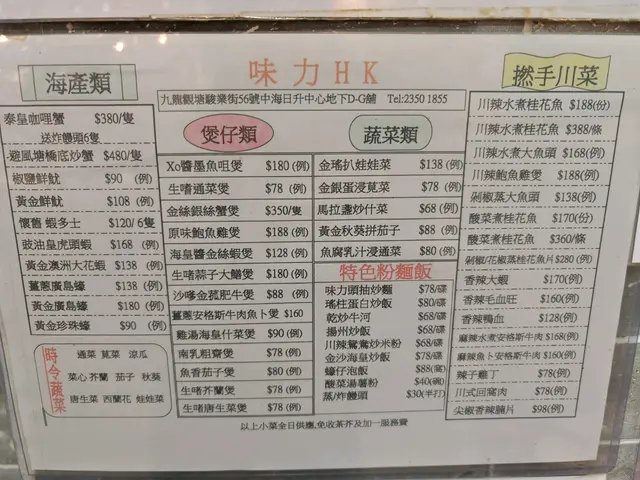 味力HK
九龍觀塘駿業街56號中海日升中心地下D-G舖 Tel:2350 1855
海產類
泰皇咖喱蟹 $380/隻
送炸饅頭6隻
避風塘橋底炒蟹 $480/隻
椒鹽鮮魷 $90 (例)
黃金鮮魷 $108 (例)
懷舊 蝦多士 $120/6隻
豉油皇虎頭蝦 $168 (例)
黃金澳洲大花蝦 $138 (例)
薑蔥廣島蠔 $138 (例)
黃金廣島蠔 $180 (例)
黃金珍珠蠔 $90 (例)
時令蔬菜
通菜 莧菜 涼瓜
菜心 芥蘭 茄子 秋葵
唐生菜 西蘭花 娃娃菜
煲仔類
Xo醬墨魚咀煲 $180 (例)
生啫通菜煲 $78 (例)
金絲銀絲蟹煲 $350/隻
原味鮑魚雞煲 $188 (例)
海皇醬金絲蝦煲 $128 (例)
生啫蒜子大鱔煲 $180 (例)
沙嗲金菇肥牛煲 $88 (例)
薑蔥安格斯牛肉魚卜煲 $160
雞湯海皇什菜煲 $90 (例)
南乳粗齋煲 $78 (例)
魚香茄子煲 $80 (例)
生啫芥蘭煲 $78 (例)
生啫唐生菜煲 $78 (例)
蔬菜類
金瑤扒娃娃菜 $138 (例)
金銀蛋浸莧菜 $78 (例)
馬拉盞炒什菜 $68 (例)
黃金秋葵拼茄子 $88 (例)
魚腐乳汁浸通菜 $80 (例)
特色粉麵飯
味力頭抽炒麵 $78/碟
瑤柱蛋白炒飯 $80/碟
乾炒牛河 $68/碟
揚州炒飯 $68/碟
川辣鴛鴦炒米粉 $68/碟
金沙海皇炒飯 $78/碟
蠔仔泡飯 $88(窩)
酸菜湯薯粉 $40(碗)
蒸/炸饅頭 $30(半打)
撚手川菜
川辣水煮桂花魚 $188(份)
川辣水煮桂花魚 $388/條
川辣水煮大魚頭 $168(例)
川辣鮑魚雞煲 $188(例)
剁椒蒸大魚頭 $138(例)
酸菜煮桂花魚 $170(份)
酸菜煮桂花魚 $360/條
剁椒/花椒蒸桂花魚片$280 (例)
香辣大蝦 $170(例)
香辣毛血旺 $160(例)
香辣鴨血 $128(例)
麻辣水煮安格斯牛肉 $168(例)
麻辣魚卜安格斯牛肉 $160(例)
辣子雞丁 $78(例)
川式回窩肉 $78(例)
尖椒香辣腩片 $98(例)
以上小菜全日供應,免收茶芥及加一服務費